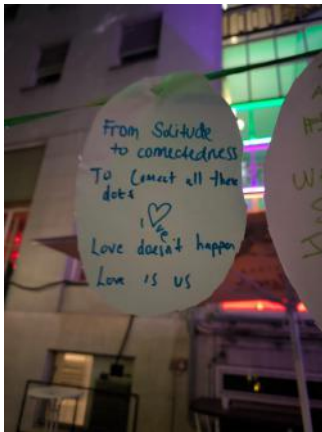 From Solitude
to connectedness
To Connect all these
dots
Love
Love doesn't happen
Love is us